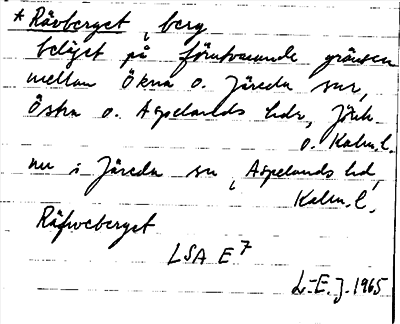 * Rävberget, berg
beläget på förutvarande gränsen
mellan Ökna o. Järeda snr,
Östra o. Aspelands hdr, Jönk.
o. Kalm. l.
nu i Järeda sn, Aspelands hd,
Kalm. l.
Räfweberget
LSA E7
L-E. J. 1965